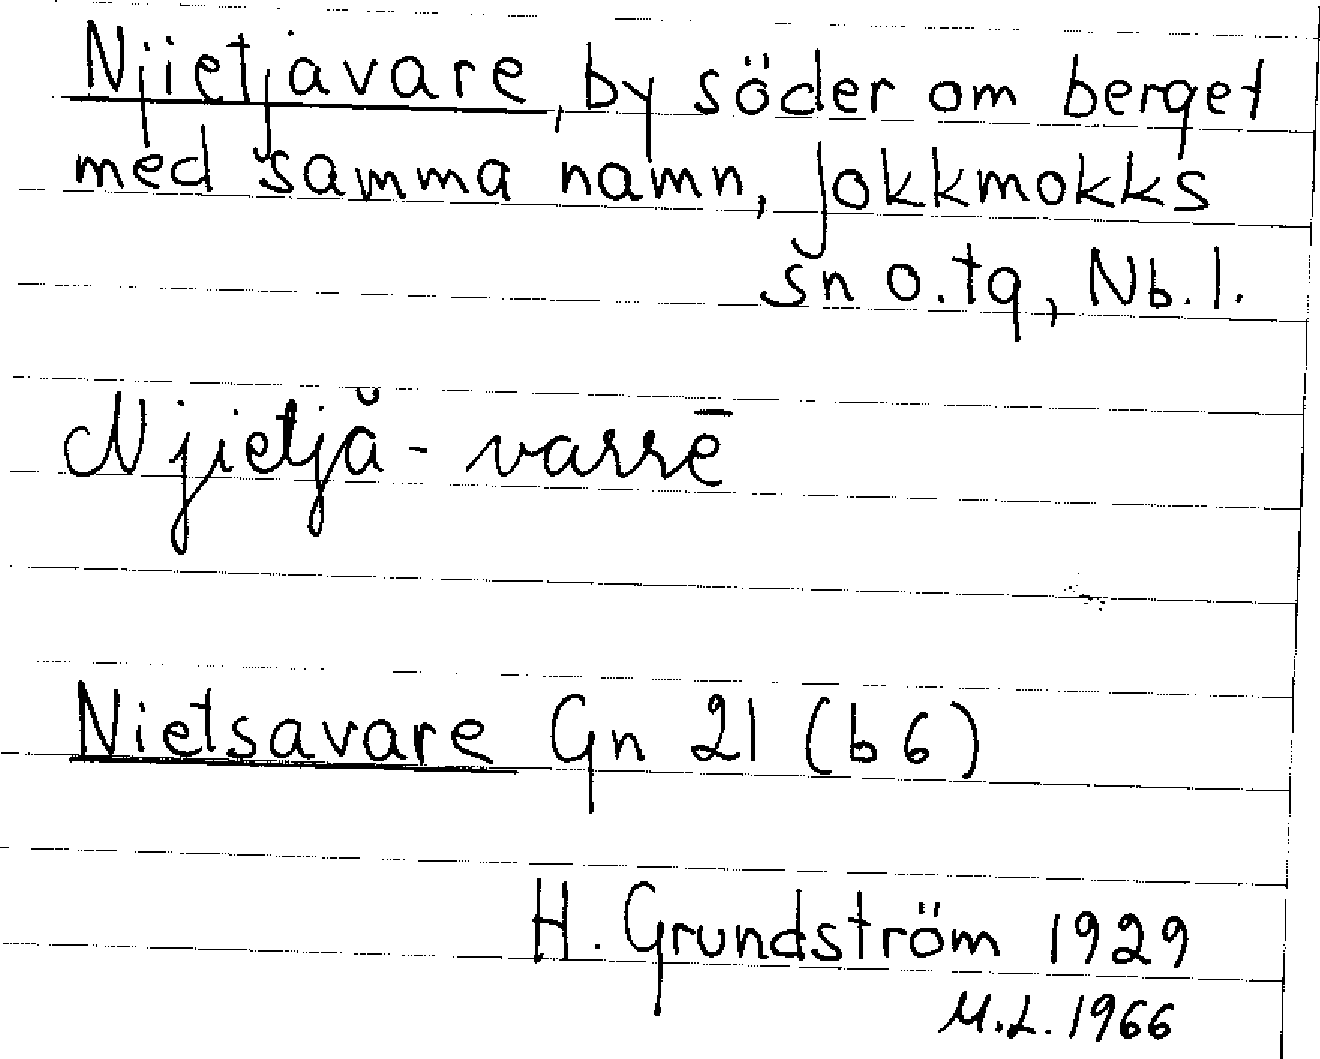 Njietjavare, by söder om berget
med samma namn, Jokkmokks
sn o. tg, Nb. l.
Njietjă-varrē
Nietsavare Gn 21 (b 6)
H. Grundström 1929
M.L. 1966